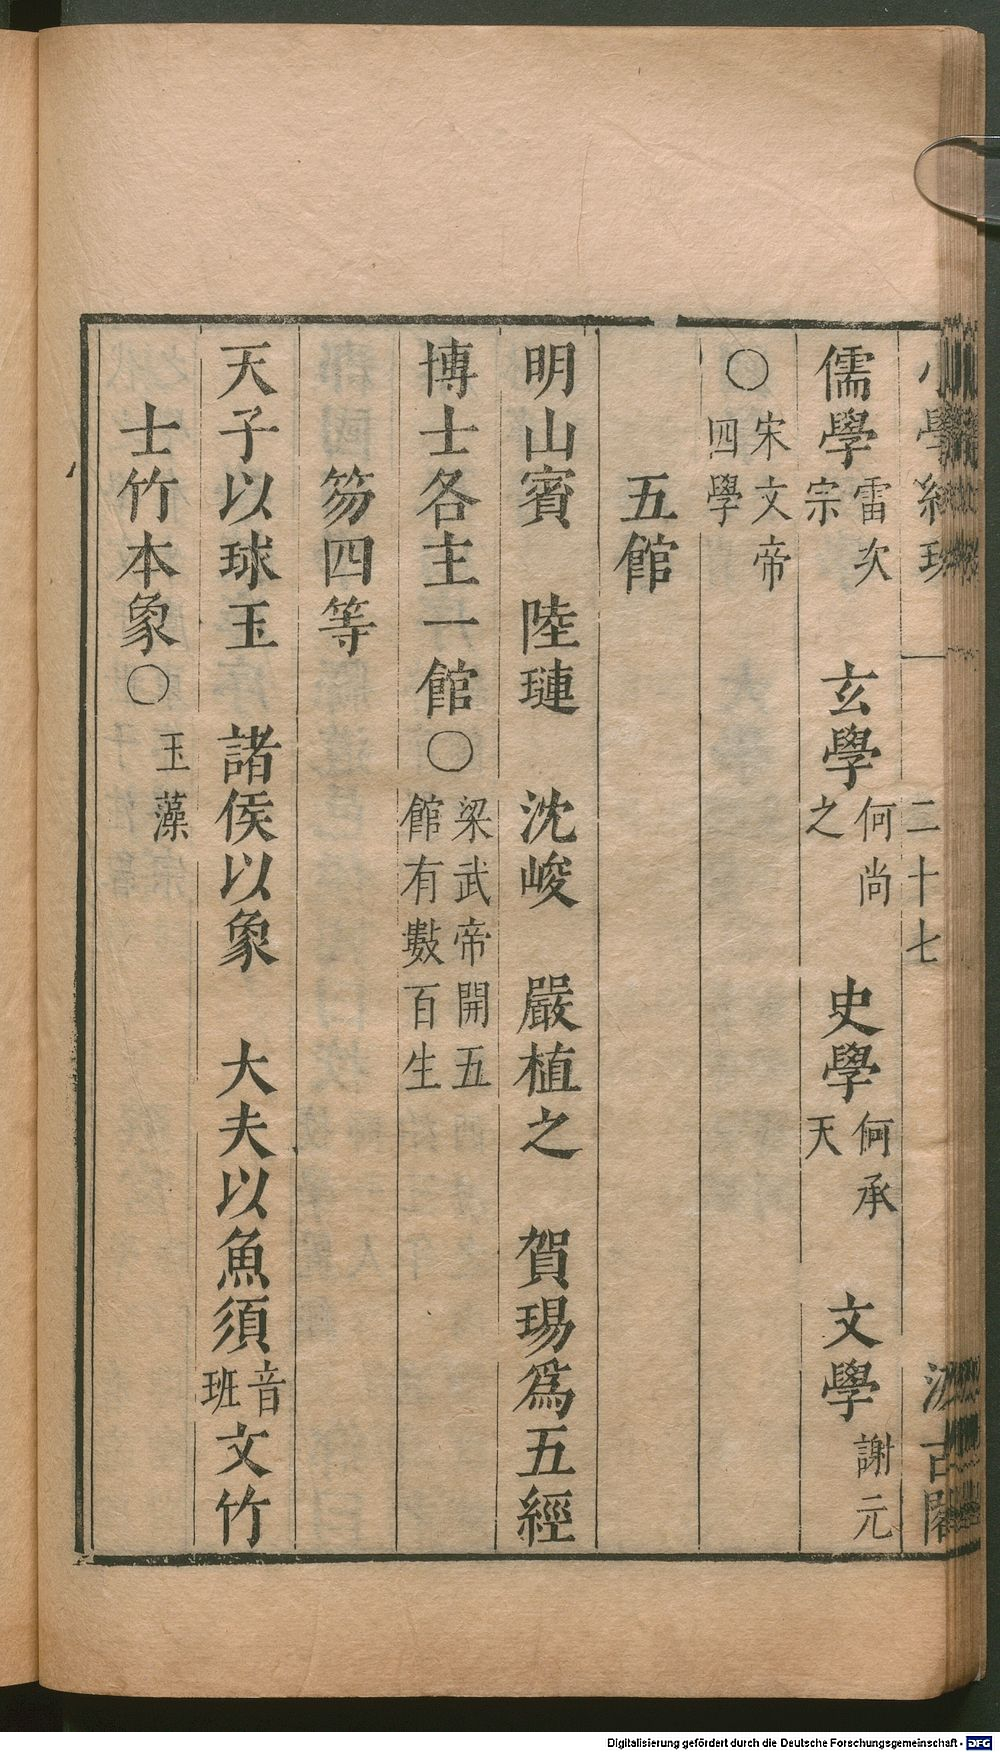 小學紺珠 一 二十七 汲古閣
儒學雷次宗 玄學何尚之 史學何承天 文學謝元
○宋文帝四學
五館
明山賓 陸璉 沈峻 嚴植之 賀瑒爲五經
博士各主一館○梁武帝開五館有數百生
笏四等
天子以球玉 諸侯以象 大夫以魚須音班文竹
士竹本象○玉藻
Digitalisierung gefördert durch die Deutsche Forschungsgemeinschaft - DFG